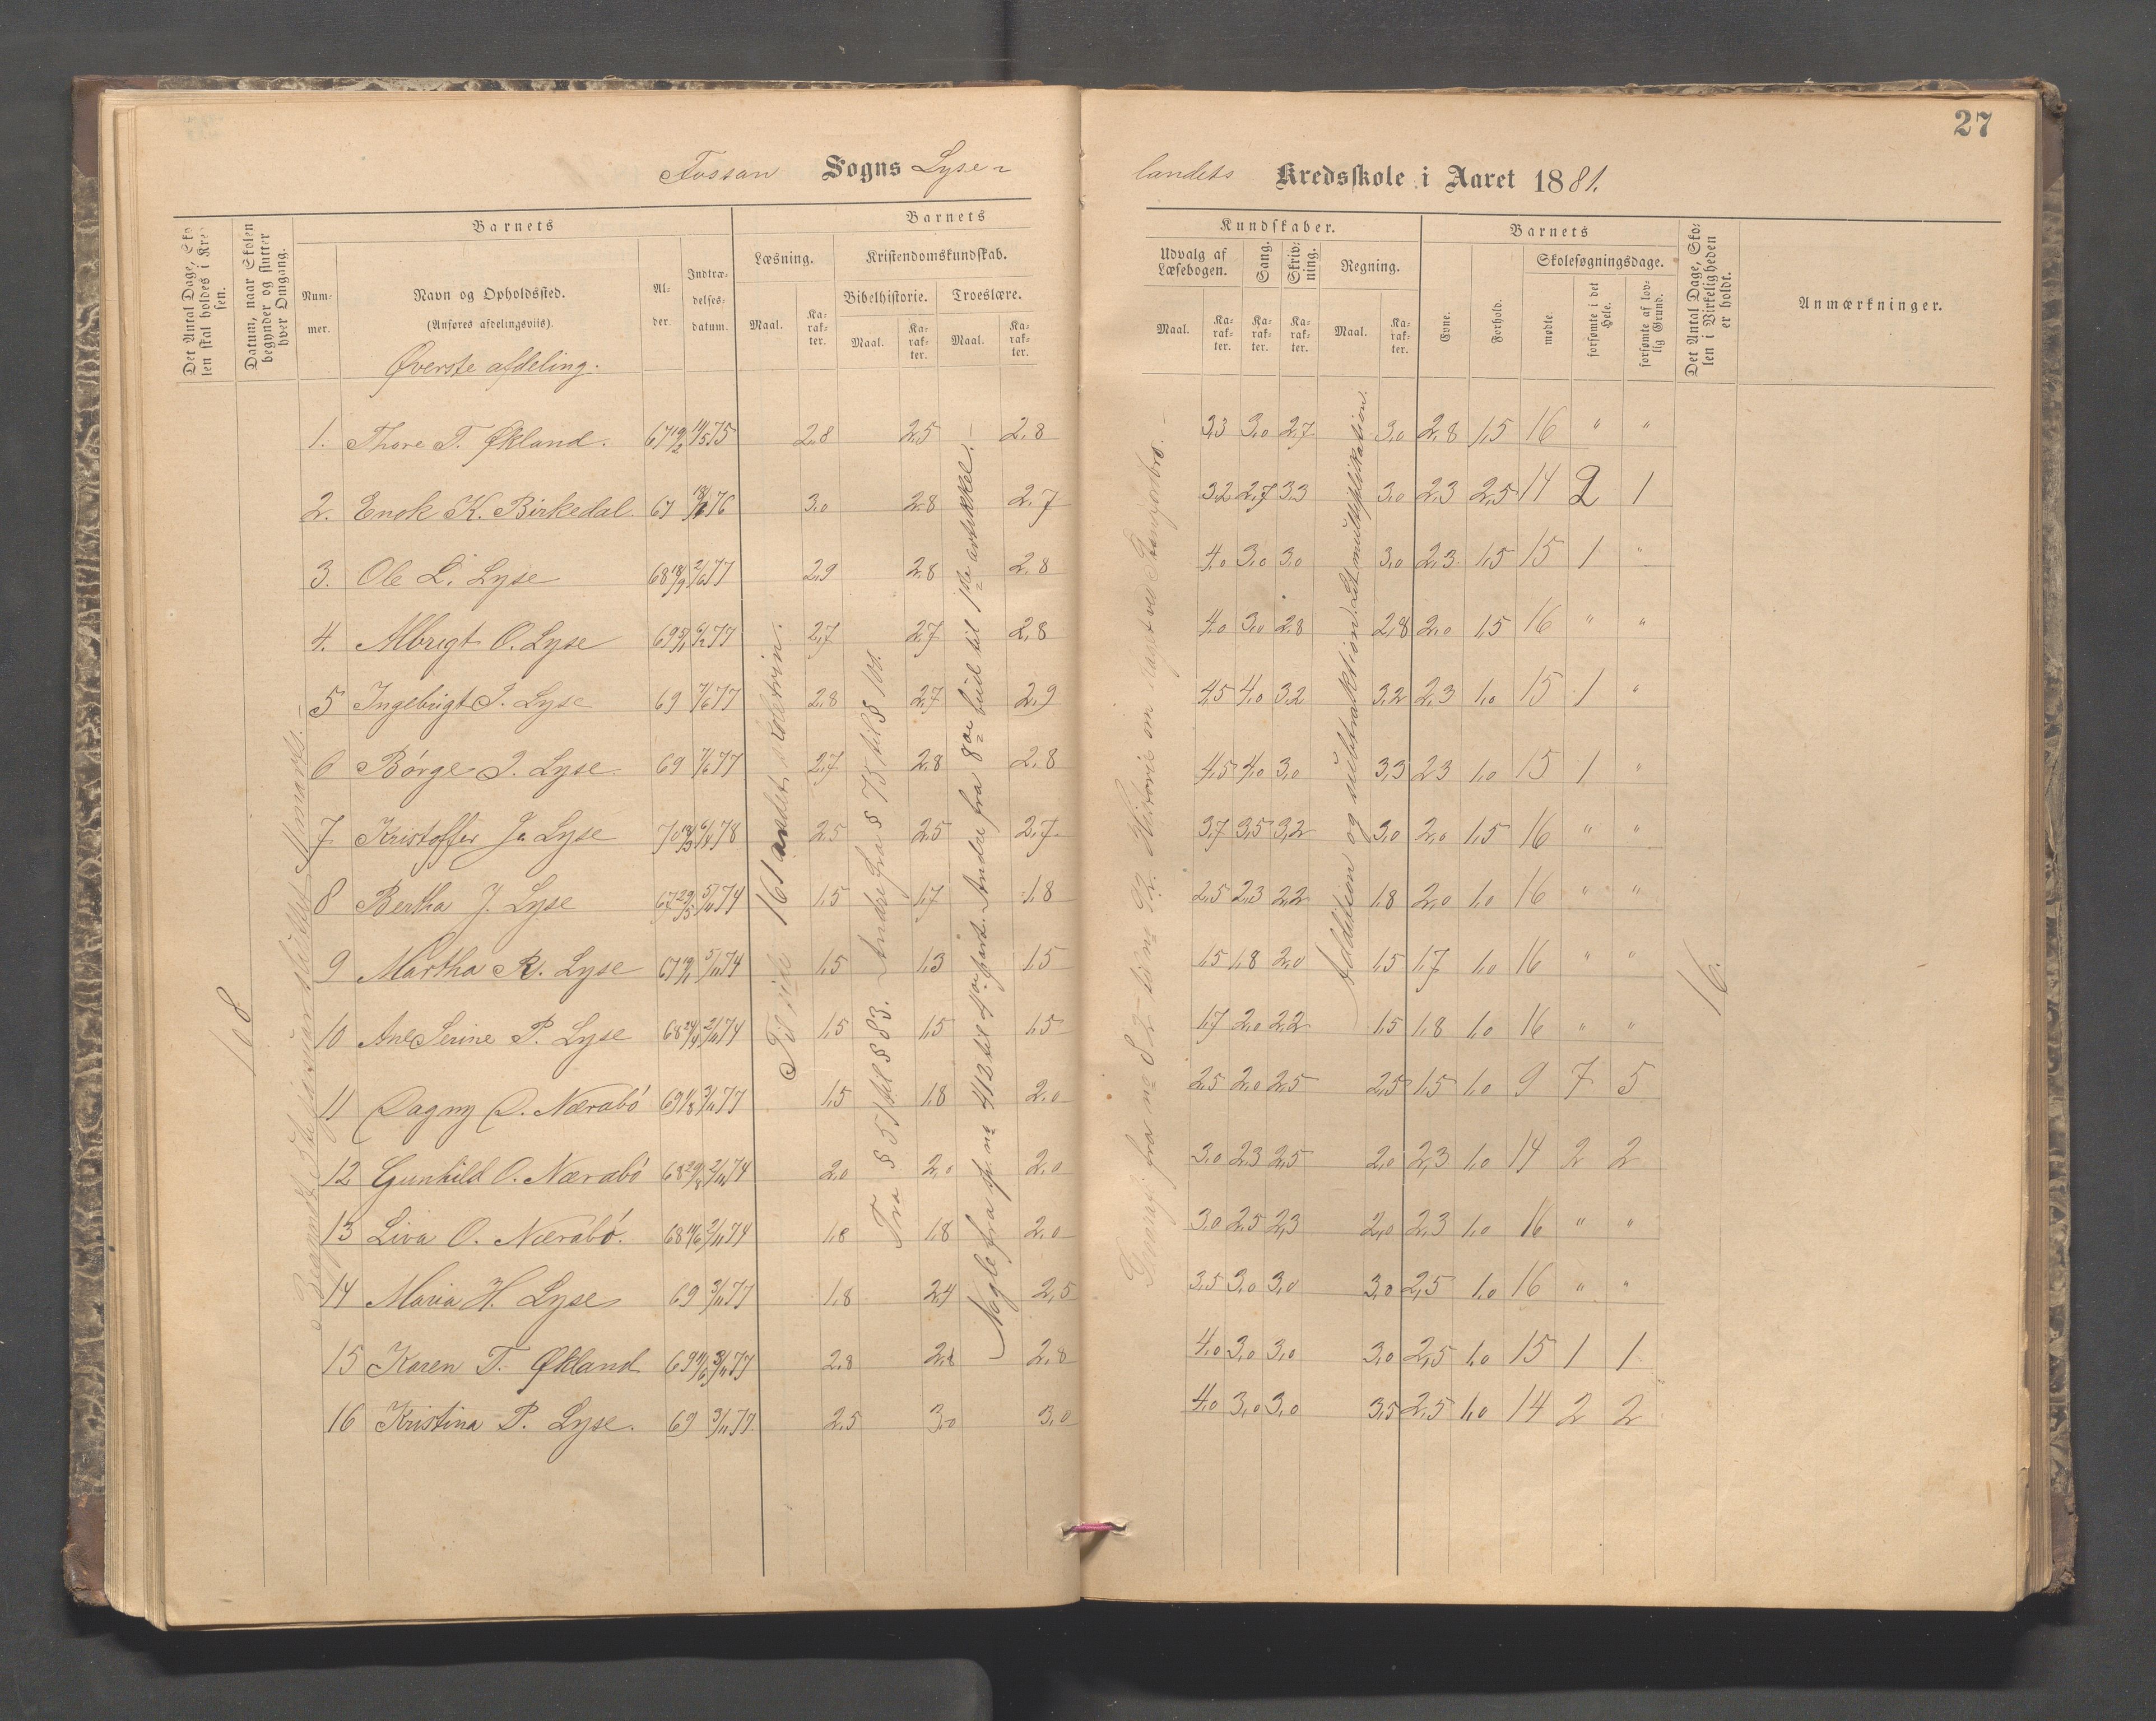 27
Fossan Sogns Lyse-
landets Kredsskole i Aaret 1881.
Det Antal Dage, Skolen skal holdes i Kredsen.
Datum, naar Skolen begynder og slutter hver Omgang.
Barnets
Nummer.
Navn og Opholdssted.
(Anføres afdelingsviis).
Øverste afdeling.
Alder.
Indtrædelsesdatum.
Barnets
Læsning.
Maal.
Karakter.
Kristendomskundskab.
Bibelhistorie.
Maal.
Karakter.
Troeslære.
Maal.
Karakter.
Kundskaber.
Udvalg af Læsebogen.
Maal.
Karakter.
Sang.
Karakter.
Skrivning.
Karakter.
Regning.
Maal.
Karakter.
Barnets
Evne.
Forhold.
Skolesøgningsdage.
mødte.
forsømte i det Hele.
forsømte af lovlig Grund.
Det Antal Dage, Skolen i Virkeligheden er holdt.
Anmærkninger.
108
Til side 161 andet skoletrin.
Fra § 51 til § 83. Andre fra § 75 til § 100.
Nogle fra sp. no 412 til 4de part. Andre fra 8de bud til 1ste artikkel.
Addition og subtraktion. Lit multiplikation.
16.
1. Thore T. Økland. 67 19/2 14/5 75 2,8 2,5 2,8 3,3 3,0 2,7 3,0 2,8 1,5 16 " "
2. Enok K. Birkedal. 67 76 3,0 2,8 2,7 3,2 2,7 3,3 3,0 2,3 2,5 14 2 1
3. Ole L. Lyse 68 18/9 2/6 77 2,9 2,8 2,8 4,0 3,0 3,0 3,0 2,3 1,5 15 1 "
4. Albrigt O. Lyse 69 77 2,7 2,7 2,8 4,0 3,0 2,8 2,8 2,0 1,5 16 " "
5 Ingebrigt J. Lyse 69 7/6 77 2,8 2,7 2,9 4,5 4,0 3,2 3,2 2,3 1,0 15 1 "
6 Børge J. Lyse. 69 7/6 77 2,7 2,8 2,8 4,5 4,0 3,0 3,3 2,3 1,0 15 1 "
7 Kristoffer J. Lyse 70 78 2,5 2,5 2,7 3,7 3,5 3,2 3,0 2,0 1,5 16 " "
8 Bertha J. Lyse 67 29/5 5/11 74 1,5 1,7 1,8 2,5 2,3 2,2 1,8 2,0 1,0 16 " "
9 Martha R. Lyse 67 5/11 74 1,5 1,3 1,5 1,5 1,8 2,0 1,5 1,7 1,0 16 " "
10 Ane Serine P. Lyse 68 24/4 2/11 74 1,5 1,5 1,5 1,7 2,0 2,2 1,5 1,8 1,0 16 " "
11 Dagny O. Nærabø 69 1/8 3/11 77 1,5 1,8 2,0 2,5 2,0 2,5 2,5 1,5 1,0 9 7 5
12 Gunhild O. Nærabø 68 2/11 74 2,0 2,0 2,0 3,0 2,3 2,5 2,0 2,3 1,0 14 2 2
13 Liva O. Nærabø. 68 14/6 2/11 74 1,8 1,8 2,0 3,0 2,5 2,3 2,0 2,3 1,0 16 " "
14 Maria H. Lyse 69 3/11 77 1,8 2,4 2,5 3,5 3,0 3,0 3,0 2,5 1,0 16 " "
15 Karen T. Økland 69 11/6 3/11 77 2,8 2,8 2,8 4,0 3,0 3,0 3,0 2,5 1,0 15 1 1
16 Kristina P. Lyse. 69 3/11 77 2,5 3,0 3,0 4,0 3,0 3,0 3,5 2,5 1,0 14 2 2